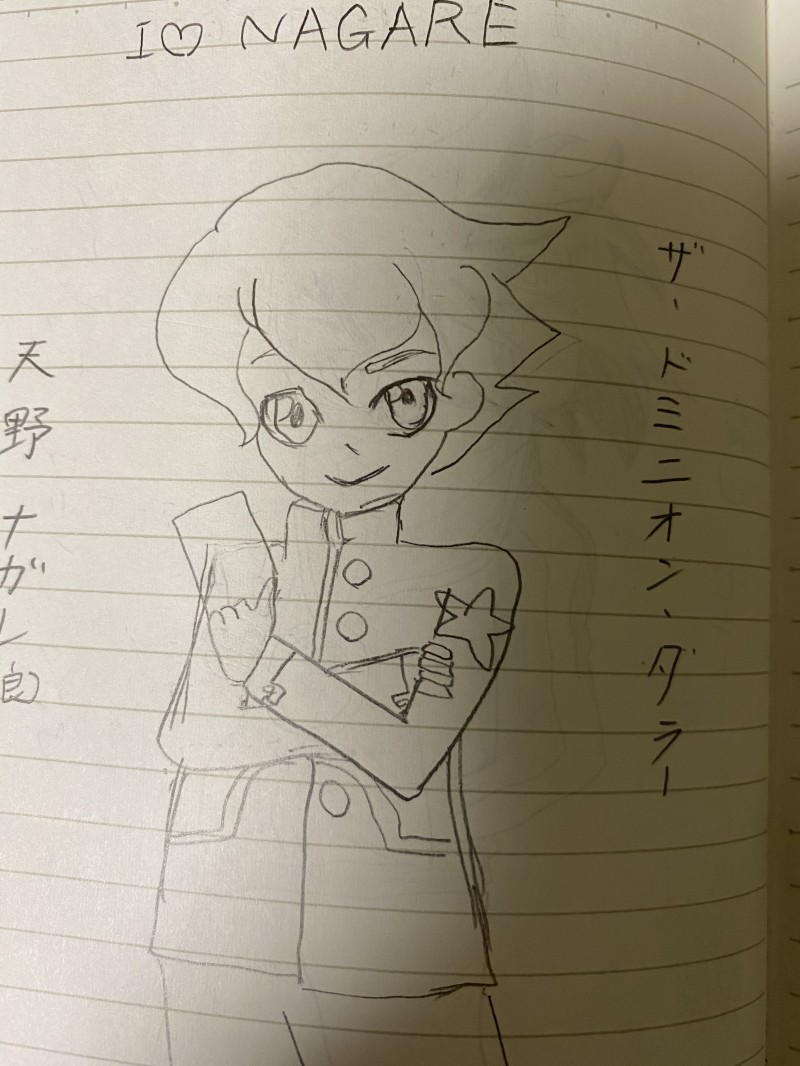 I♡ NAGARE
ザ・ドミニオン・ダラー
天野ナガレ郎